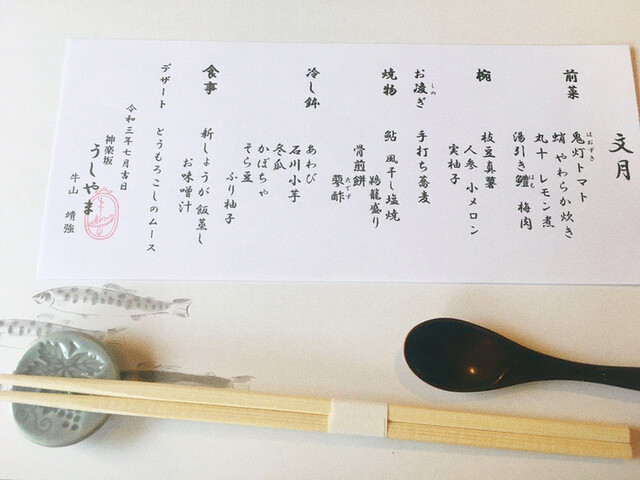 文月
前菜
鬼灯トマト
ほおずき
蛸 やわらか炊き
丸十 レモン煮
湯引き鱧 梅肉
はも
椀
枝豆真薯
人参 小メロン
実柚子
お凌ぎ
しの
手打ち蕎麦
焼物
鮎 風干し塩焼
鵜籠盛り
骨煎餅
蓼酢
たでず
冷し鉢
あわび
石川小芋
冬瓜
かぼちゃ
そら豆
ふり柚子
食事
新しょうが飯蒸し
お味噌汁
デザート とうもろこしのムース
令和三年七月吉日
神楽坂
うしやま
牛山 靖強